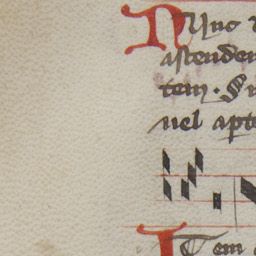 Nunc
ascenden
tem. Su
uel apte
Item